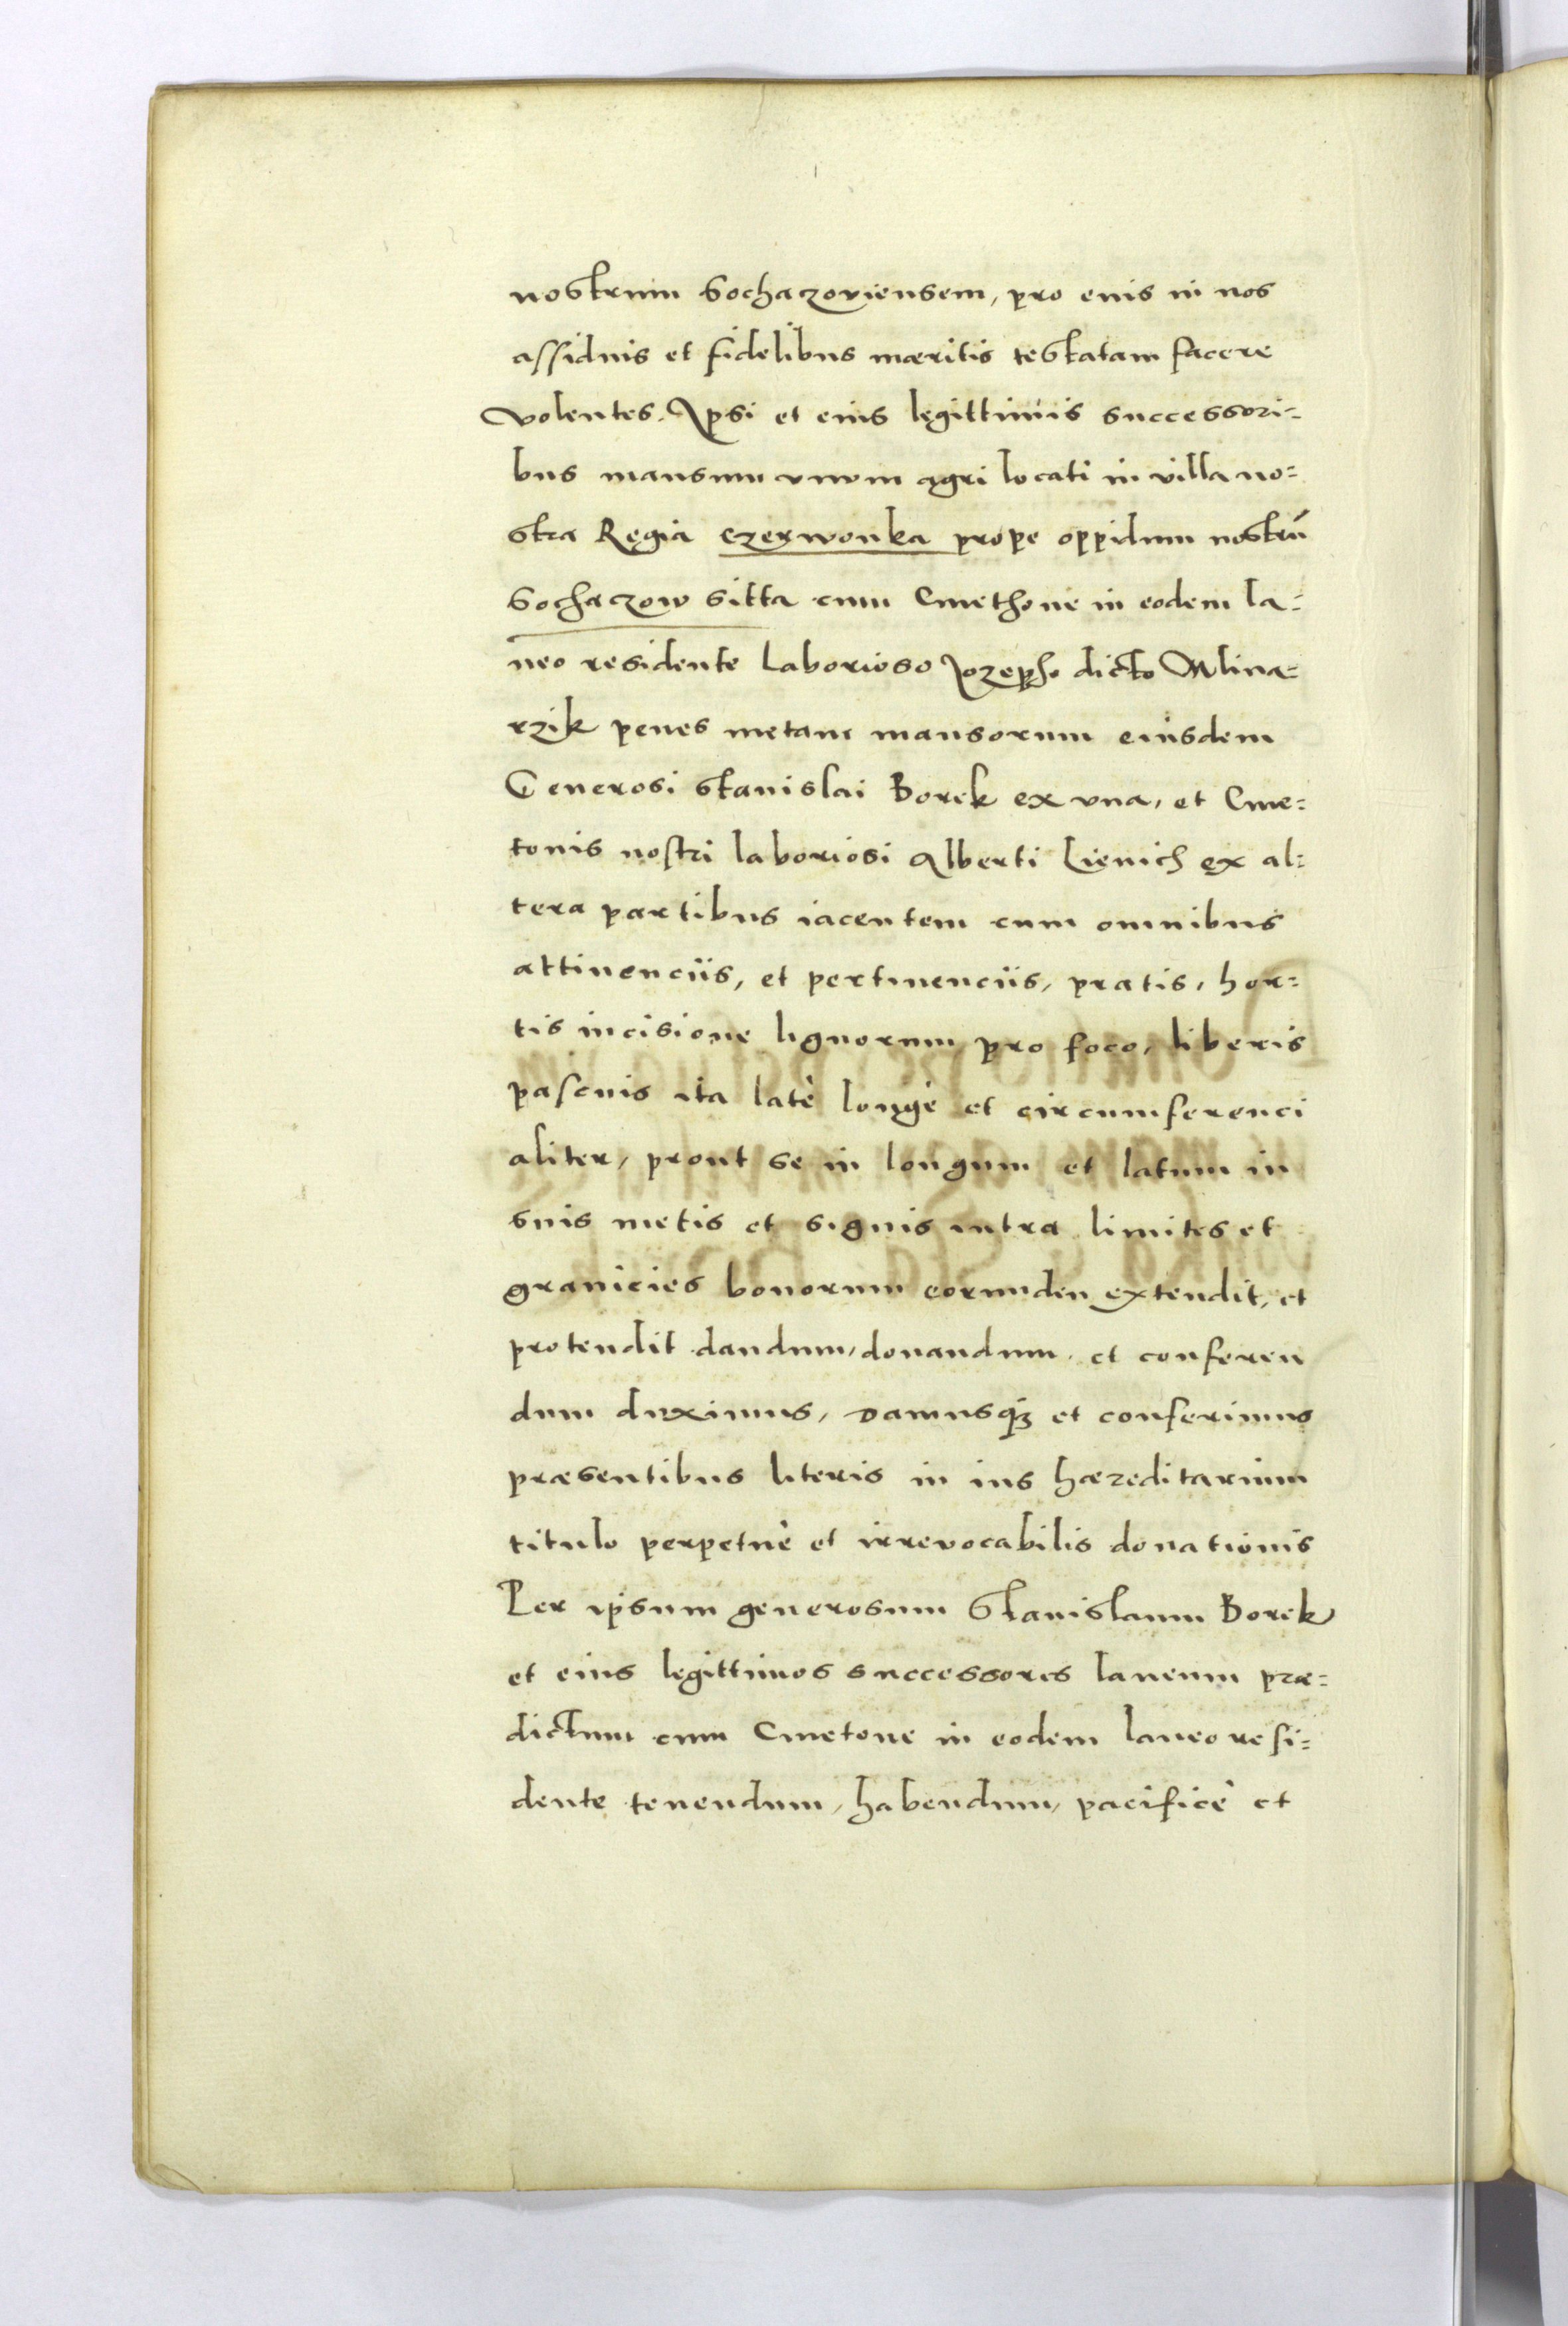 nostrum Sochaczoviensem, pro eius in nos
assiduis et fidelibus mæritis testatam facere
volentes. Ipsi et eius legittimis successori=
bus mansum vnum agri locati in villa no=
stra Regia Czerwonka prope oppidum nostrū
Sochaczow sitta cum Cmethone in eodem la=
neo residente Laborioso Jozepho dicto Mlina=
rzik penes metam mansorum eiusdem
Generosi Stanislai Borek ex vna, et Cme=
tonis nostri laboriosi Alberti Lienich ex al=
tera partibus iacentem cum omnibus
attinenciis, et pertinenciis, pratis, hor=
tis incisione lignorum pro foco, liberis
pascuis ita latè longè et circumferenci
aliter, prout se in longum et latum in
suis metis et signis intra limites et
granicies bonorum eorumden extendit, et
protendit dandum, donandum, et conferen
dum duximus, Damusq3 et conferimus
præsentibus literis in ius hæreditarium
titulo perpetuè et irrevocabilis donationis
Per ipsum generosum Stanislaum Borek
et eius legittimos successores laneum præ=
dictum cum Cmetone in eodem laneo resi=
dente tenendum, habendum, pacificè et